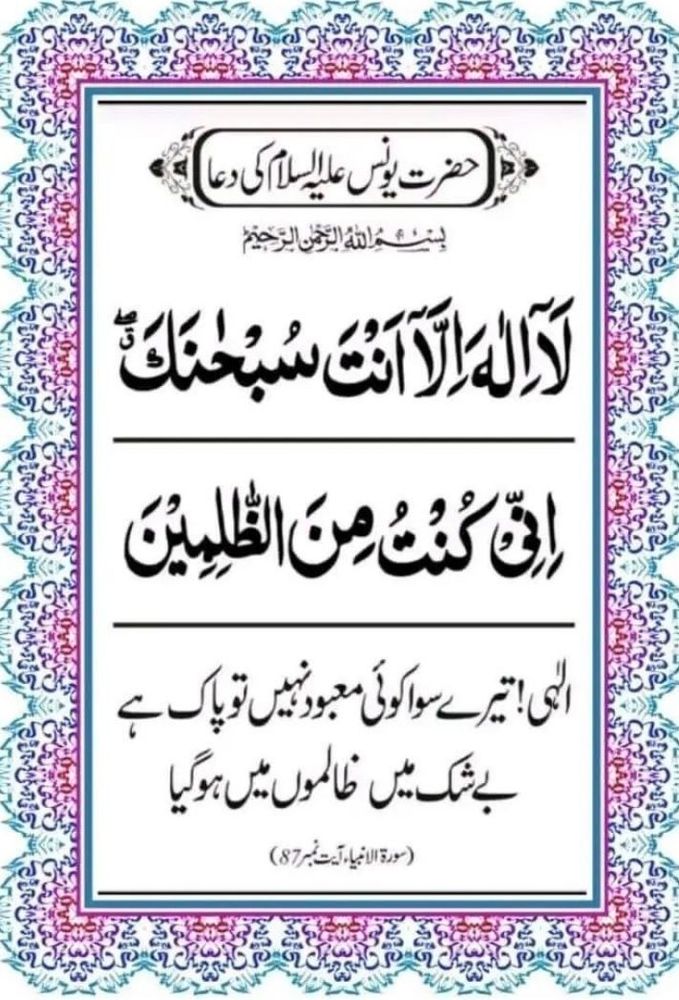 حضرت یونس علیہ السلام کی دعا
بِسْمِ اللهِ الرَّحْمٰنِ الرَّحِيْمِ
لَآ اِلٰهَ اِلَّآ اَنْتَ سُبْحٰنَكَ ۖۗ
اِنِّىْ كُنْتُ مِنَ الظّٰلِمِيْنَ
الٰہی! تیرے سوا کوئی معبود نہیں تو پاک ہے
بے شک میں ظالموں میں ہو گیا
(سورۃ الانبیاء آیت نمبر 87)